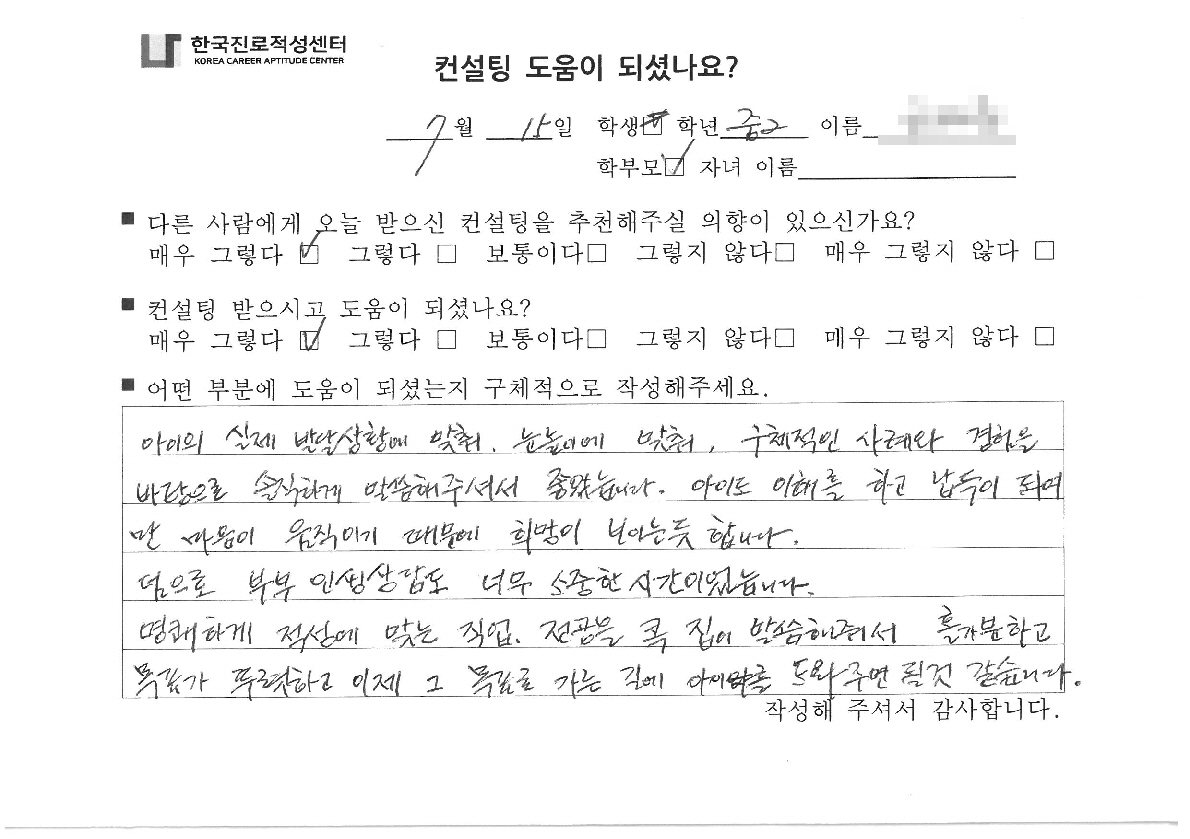 한국진로적성센터
KOREA CAREER APTITUDE CENTER
컨설팅 도움이 되셨나요?
7월 15일 학생☑ 학년 중2 이름
학부모☑ 자녀 이름
■ 다른 사람에게 오늘 받으신 컨설팅을 추천해주실 의향이 있으신가요?
매우 그렇다 ☑ 그렇다 □ 보통이다□ 그렇지 않다□ 매우 그렇지 않다 □
■ 컨설팅 받으시고 도움이 되셨나요?
매우 그렇다 ☑ 그렇다 □ 보통이다□ 그렇지 않다□ 매우 그렇지 않다 □
■ 어떤 부분에 도움이 되셨는지 구체적으로 작성해주세요.
아이의 실제 발달상황에 맞춰, 눈높이에 맞춰, 구체적인 사례와 경험을
바탕으로 솔직하게 말씀해주셔서 좋았습니다. 아이도 이해를 하고 납득이 되어
만 마음이 움직이기 때문에 희망이 보이는듯 합니다.
덤으로 부부 인생상담도 너무 소중한 시간이었습니다.
명쾌하게 적성에 맞는 직업, 전공을 콕 집어 말씀해주셔서 홀가분하고
목표가 뚜렷하고 이제 그 목표로 가는 길에 아이를 도와주면 될것 같습니다.
작성해 주셔서 감사합니다.